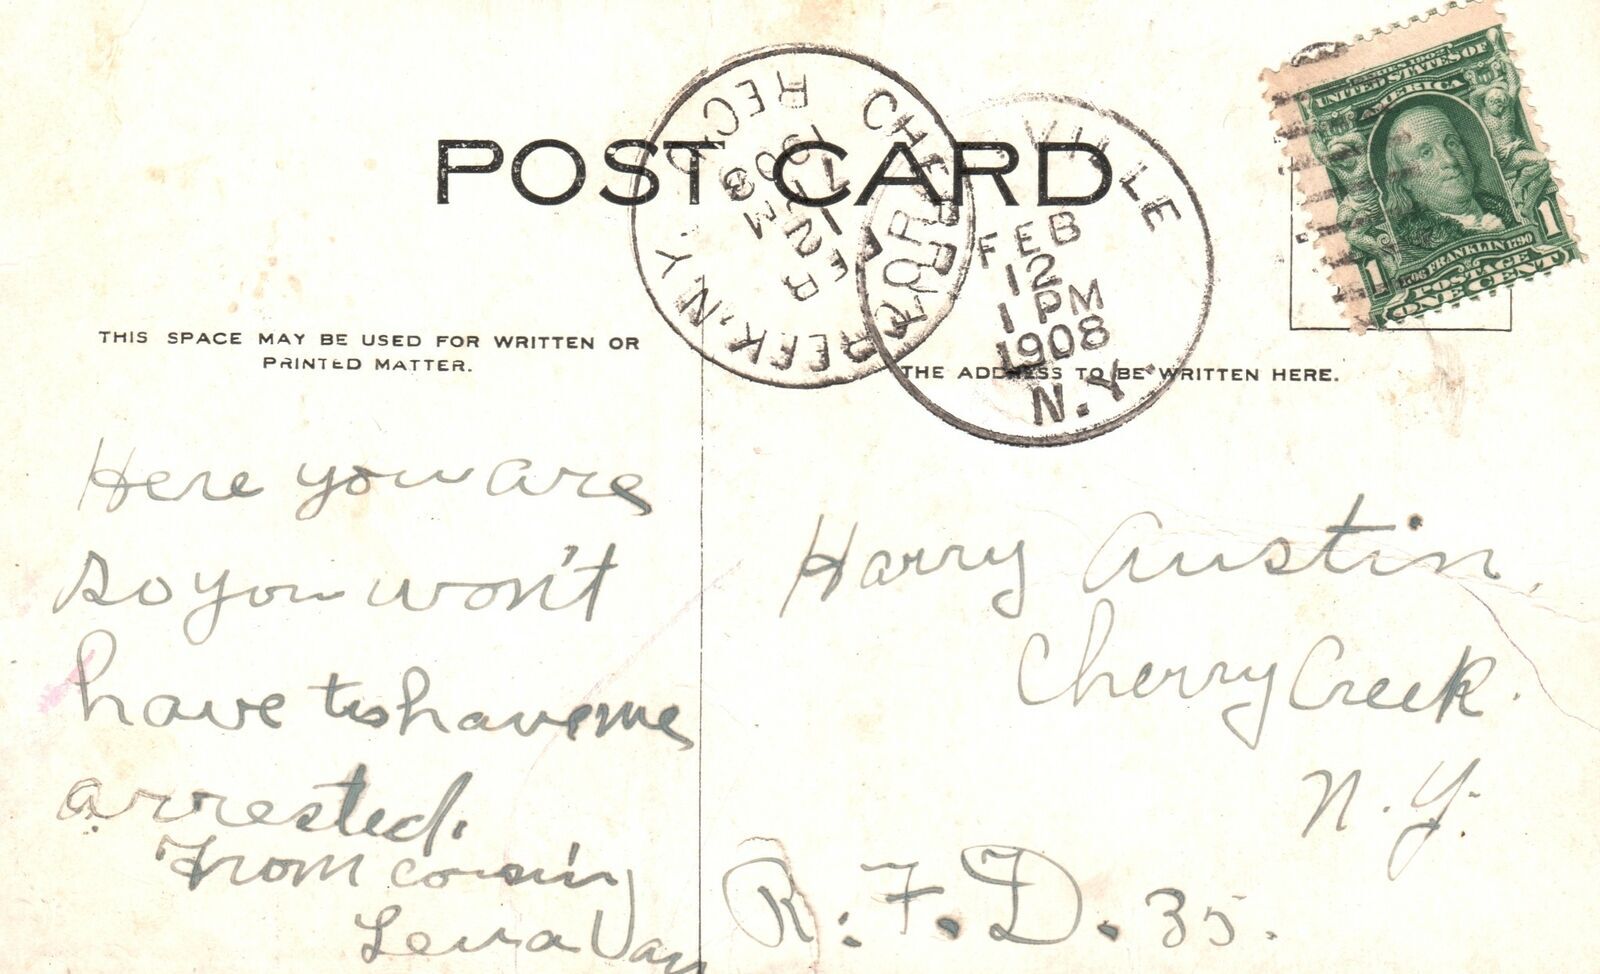 POST CARD
CHERRY CREEK, N.Y.
REC'D.
FEB 12
1 PM
1908
VILLE
FEB
12
1 PM
1908
N.Y.
SERIES 1902
UNITED STATES OF
AMERICA
1706 FRANKLIN 1790
1 1
POSTAGE
ONE CENT
THIS SPACE MAY BE USED FOR WRITTEN OR
PRINTED MATTER.
THE ADDRESS TO BE WRITTEN HERE.
Here you are
so you won't
have to have me
arrested.
From cousin
Van
Harry Austin,
Cherry Creek.
N.Y.
R.F.D. 35.